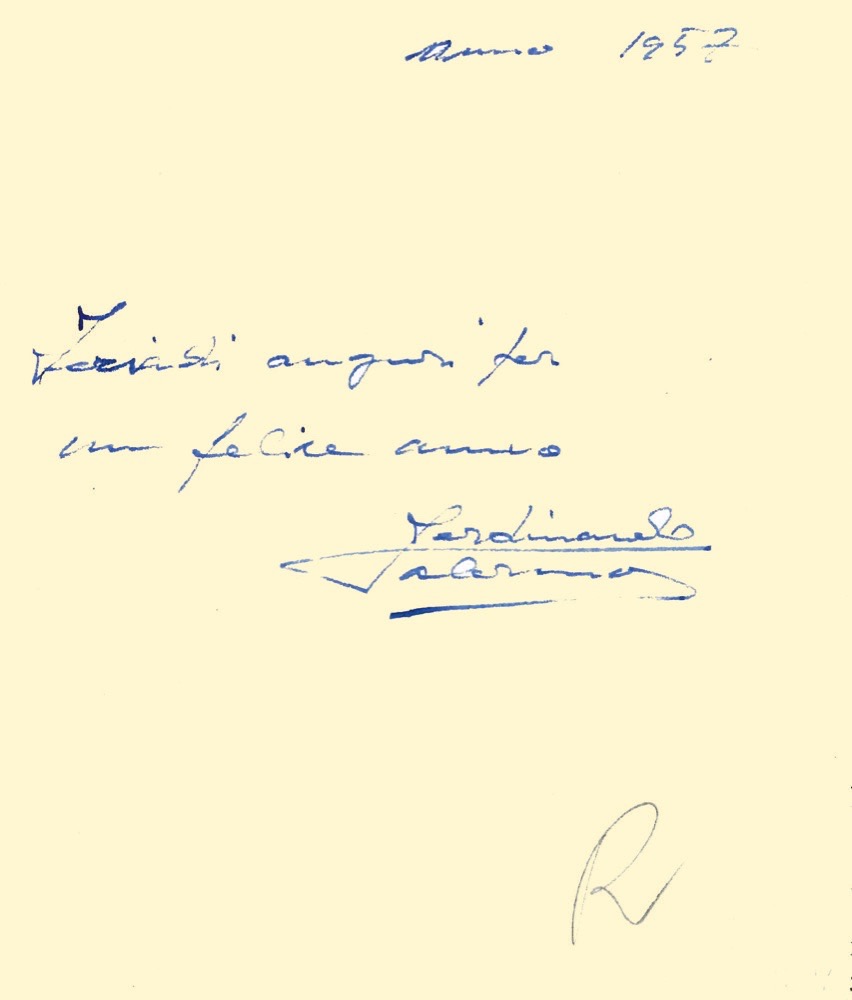 Anno 1957
Fervidi auguri per
un felice anno
Ferdinando
Palermo
R